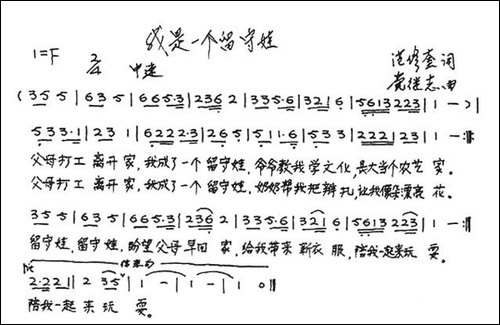 我是一个留守娃
1=F 2/4 中速 词
继志 曲
( 35 5 | 63 5 | 665·3 | 236 2 | 335·6 | 321 6 | 5613 223 | 1 — ) |
533·1 | 23 1 | 6222·3 | 26 5 | 511·6 | 53 3 | 222 | 23 | 1 — :||
父母打工 离开 家,我成了一个 留守娃,爷爷教我学文化,长大当个农艺 家。
父母打工 离开 家,我成了一个 留守娃,奶奶帮我把辫扎,让我像朵漂亮 花。
35 5 | 63 5 | 665·3 | 236 2 | 335·6 | 321 6 | 5613 223 | 1 — :||
留守娃,留守娃,盼望父母早回 家,给我带来新衣 服,陪我一起来玩 耍。
结束句
2·221 | 2 35 | 1 — | 1 — | 1 0 ||
陪我一起 来玩 耍。